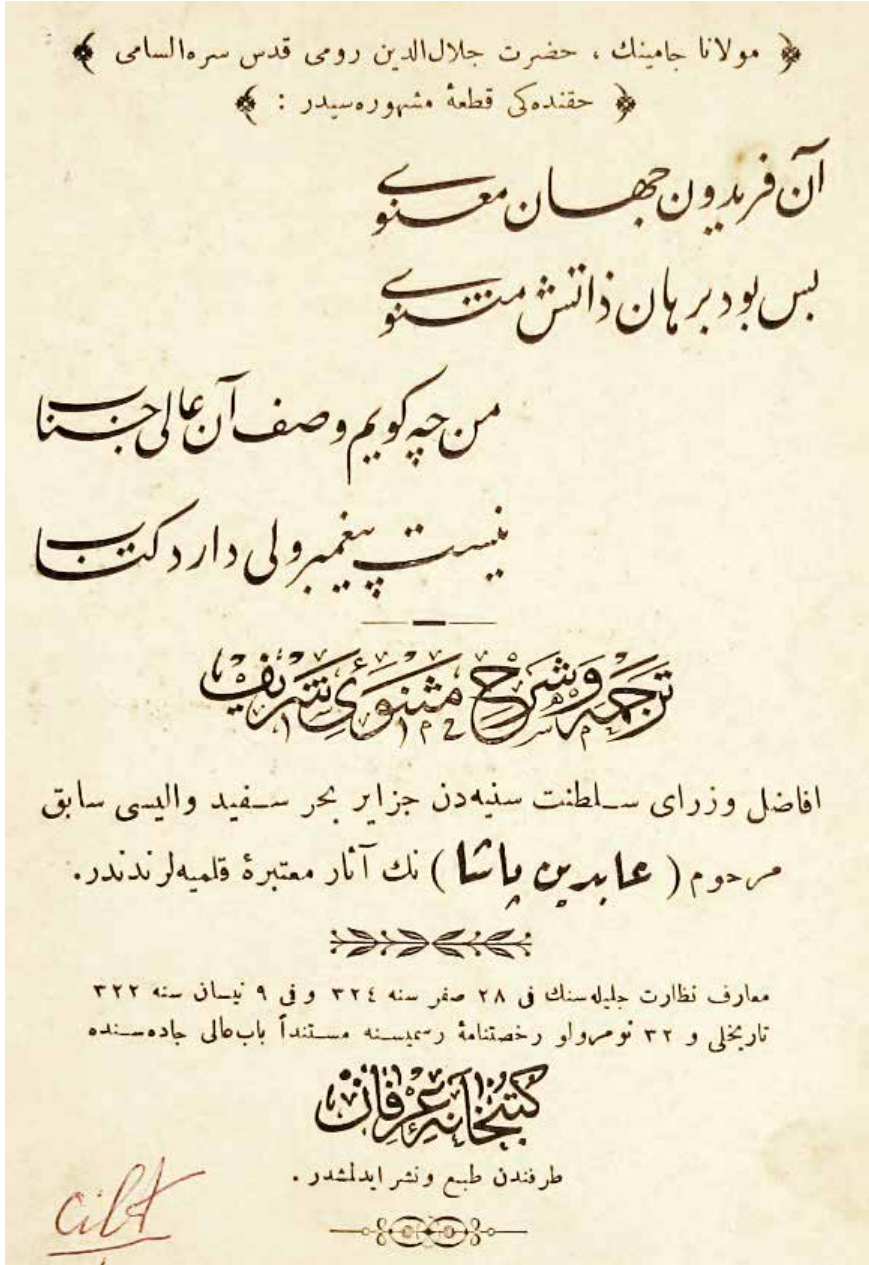 مولانا جامينك ، حضرت جلال‌الدين رومی قدس سره‌السامی
حقنده‌کی قطعهٔ مشهوره‌سيدر :
آن فريدون جهان معنوی
بس بود برهان ذاتش مثنوی
من چه کويم وصف آن عالی جناب
نيست پيغمبر ولی دارد کتاب
ترجمه و شرح مثنویٔ شريف
افاضل وزرای سلطنت سنيه‌دن جزاير بحر سفيد واليسی سابق
مرحوم ( عابدين پاشا ) نك آثار معتبرهٔ قلميه‌لرندندر.
معارف نظارت جليله‌سنك فی ٢٨ صفر سنه ٣٢٤ و فی ٩ نيسان سنه ٣٢٢
تاريخلی و ٣٢ نومرولو رخصتنامهٔ رسميسنه مستنداً باب‌عالی جاده‌سنده
کتبخانهٔ عرفان
طرفندن طبع و نشر ايدلمشدر .
cilt